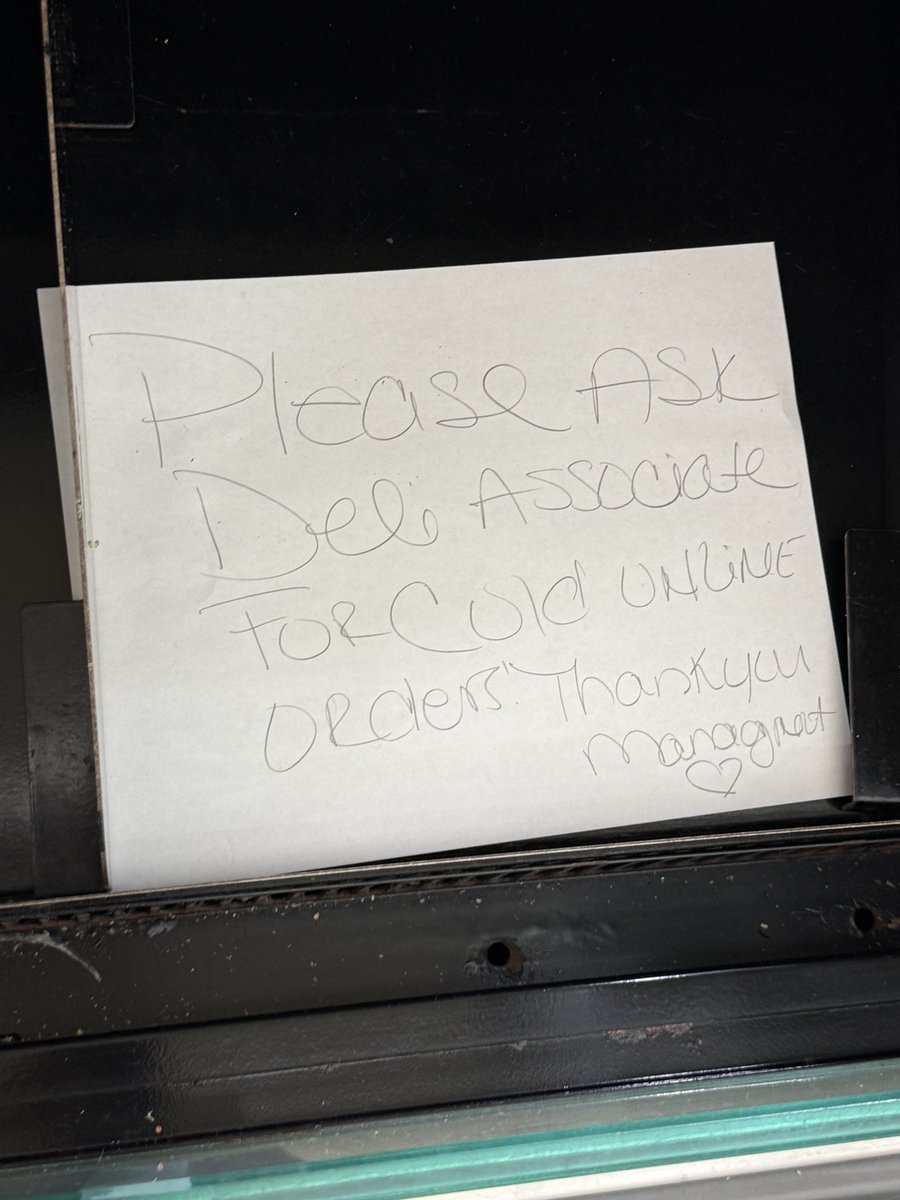 Please ASK
Deli ASSociate
FOR Cold ONLINE
ORders! Thank you
Managmet